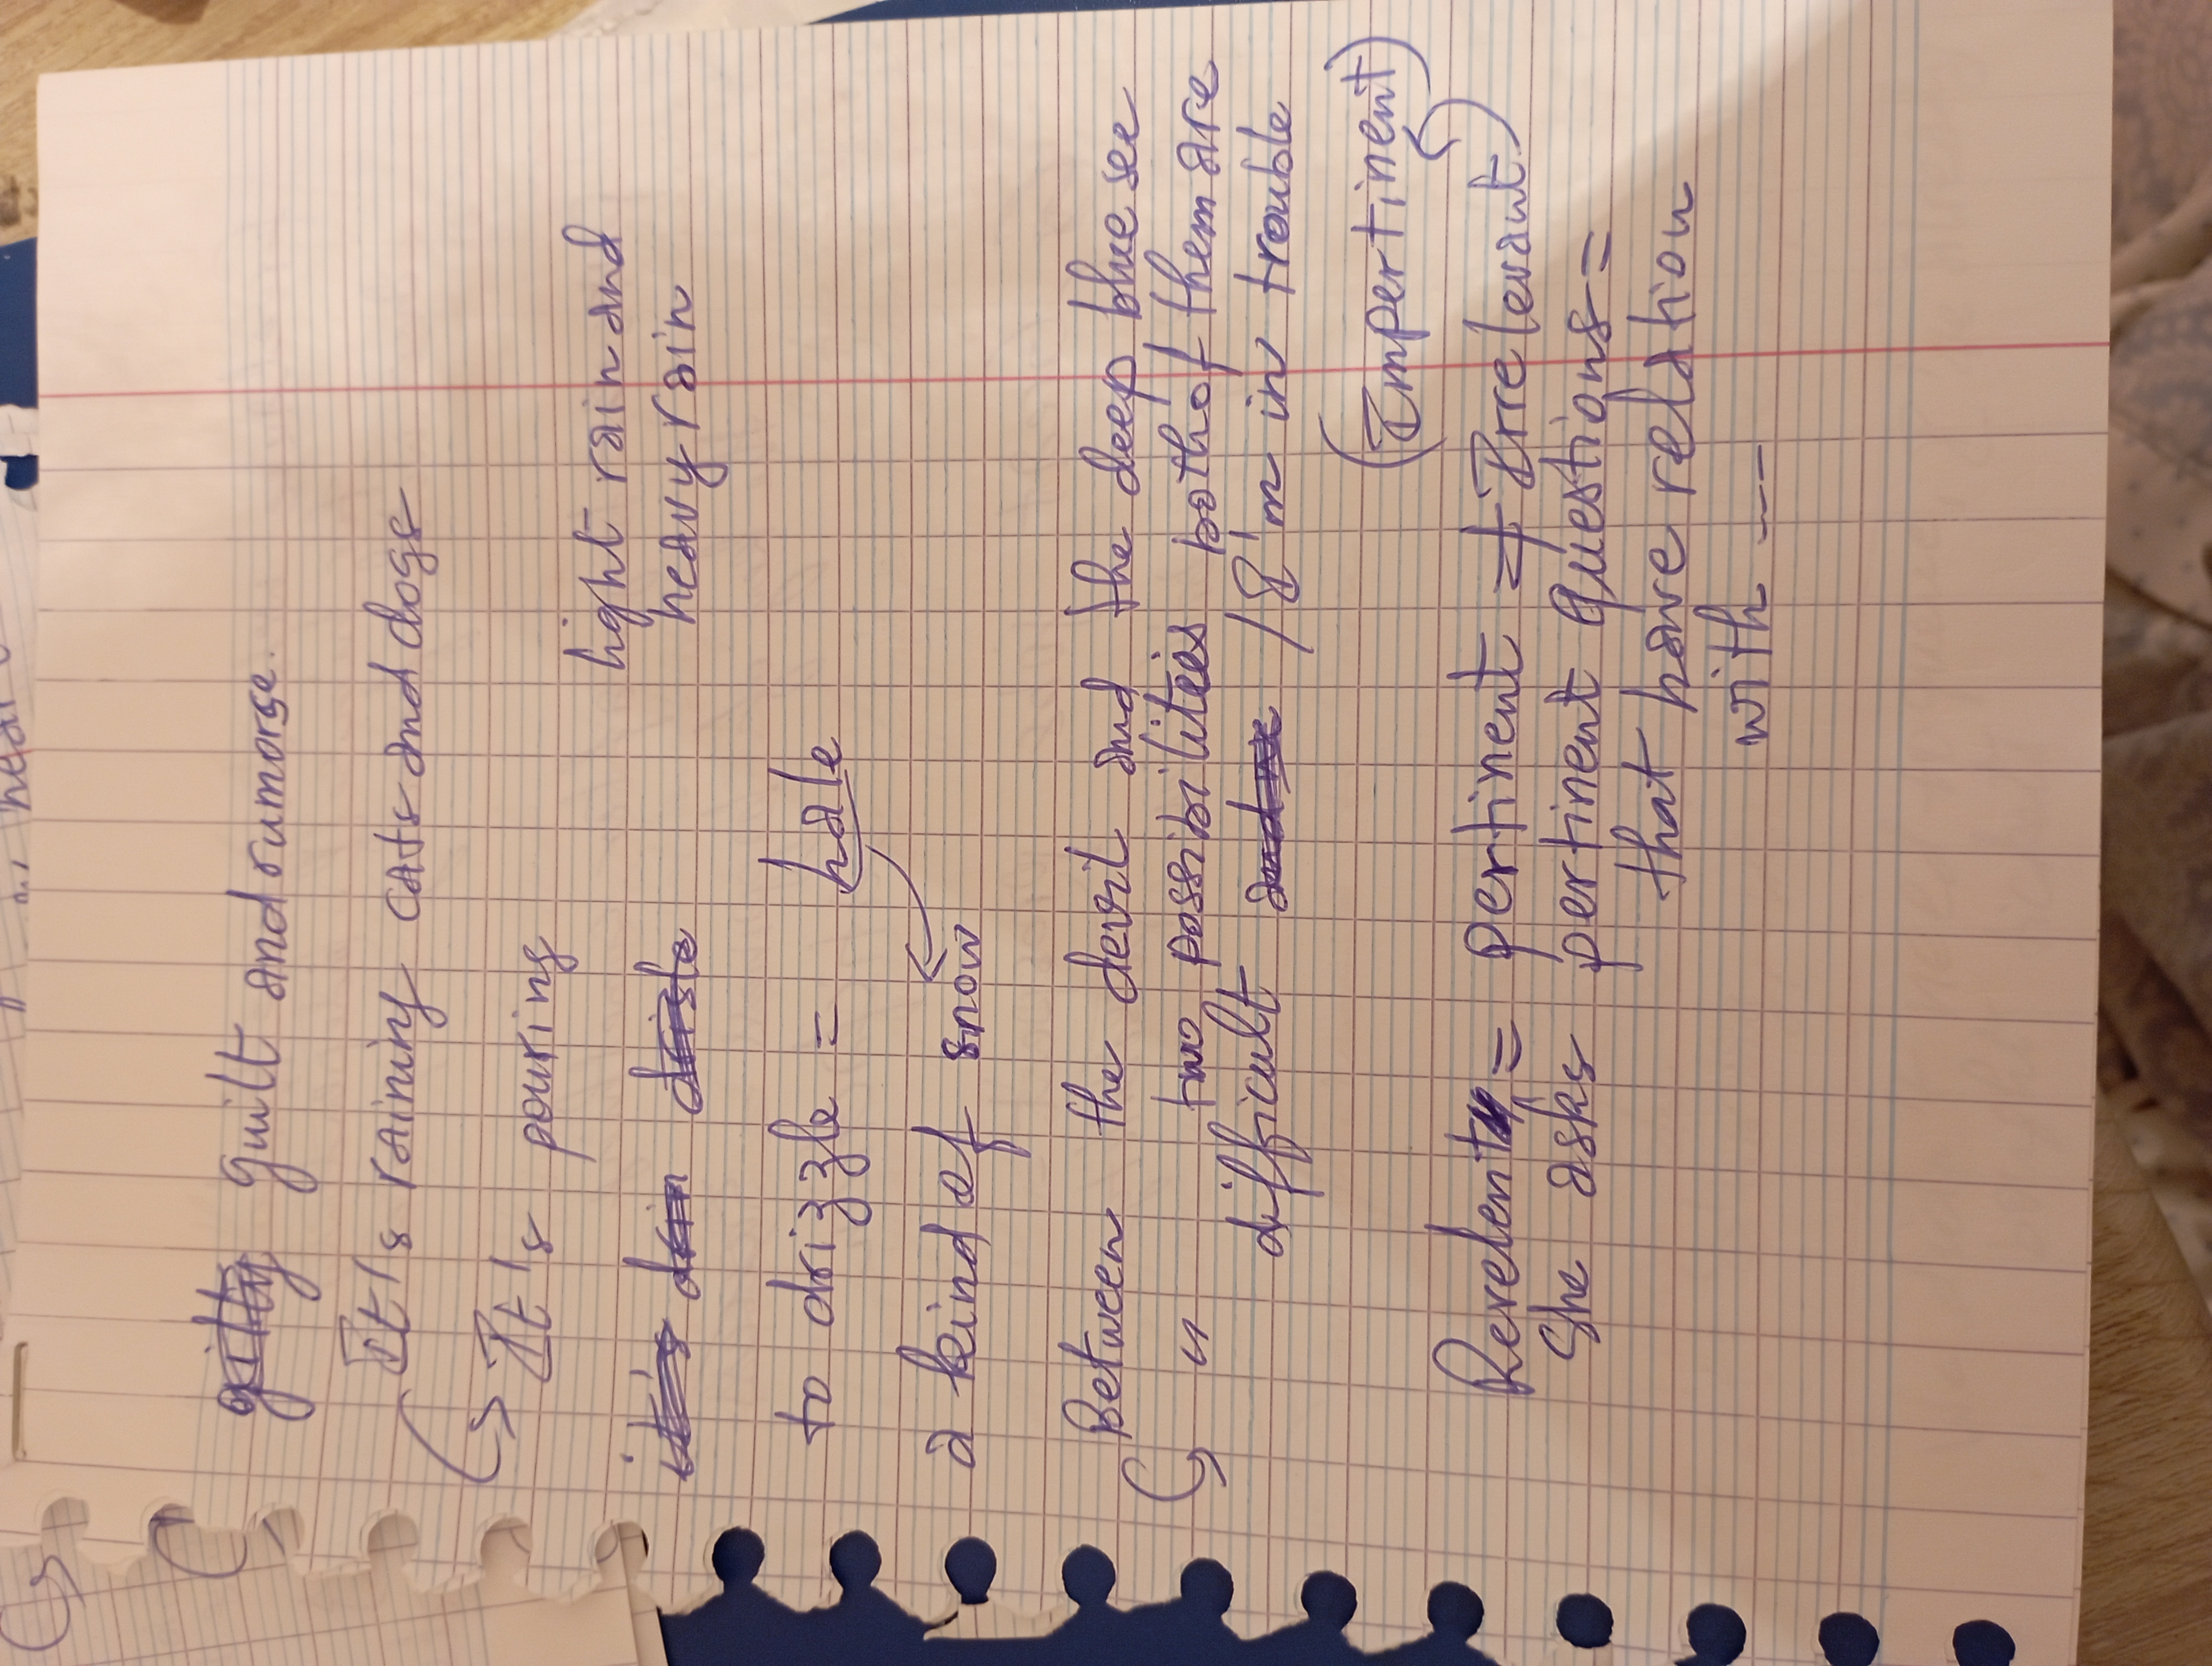 guilt and rumorse.
It's raining cats and dogs
It's pouring
light rain and
heavy rain
to drizzle = hale
a kind of snow
Between the devil and the deep blue see
" two possibilities both of them are
difficult / I'm in trouble
(Impertinent)
Revelent = pertinent ≠ Irrelevant
She asks pertinent questions =
that have relation
with ---